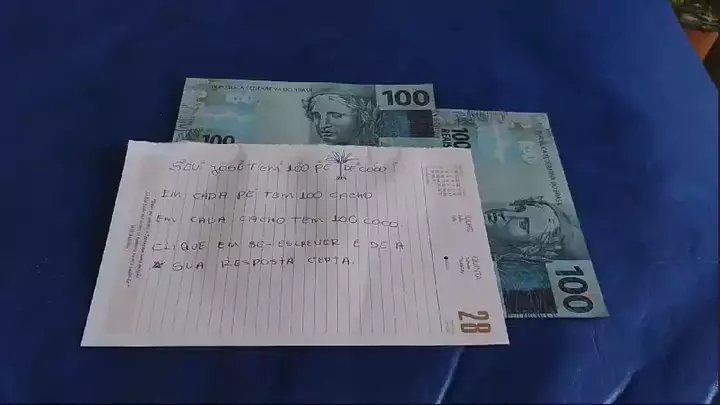 REPÚBLICA FEDERATIVA DO BRASIL
100
100
100
REAIS
100
SEU JOSÉ TEM 100 PÉ DE COCO
EM CADA PÉ TEM 100 CACHO
EM CADA CACHO TEM 100 COCO.
CLIQUE EM SE-ESCREVER E DE A
SUA RESPOSTA CERTA.
QUINTA
28